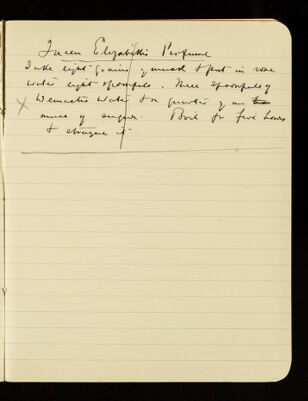 Queen Elizabeths Perfume
Take eight grains of musk & put in rose
water eight spoonfuls. Three spoonfuls of
X Damaske Water & a quarter of an
ounce of sugar. Boil for five hours
& strayne it